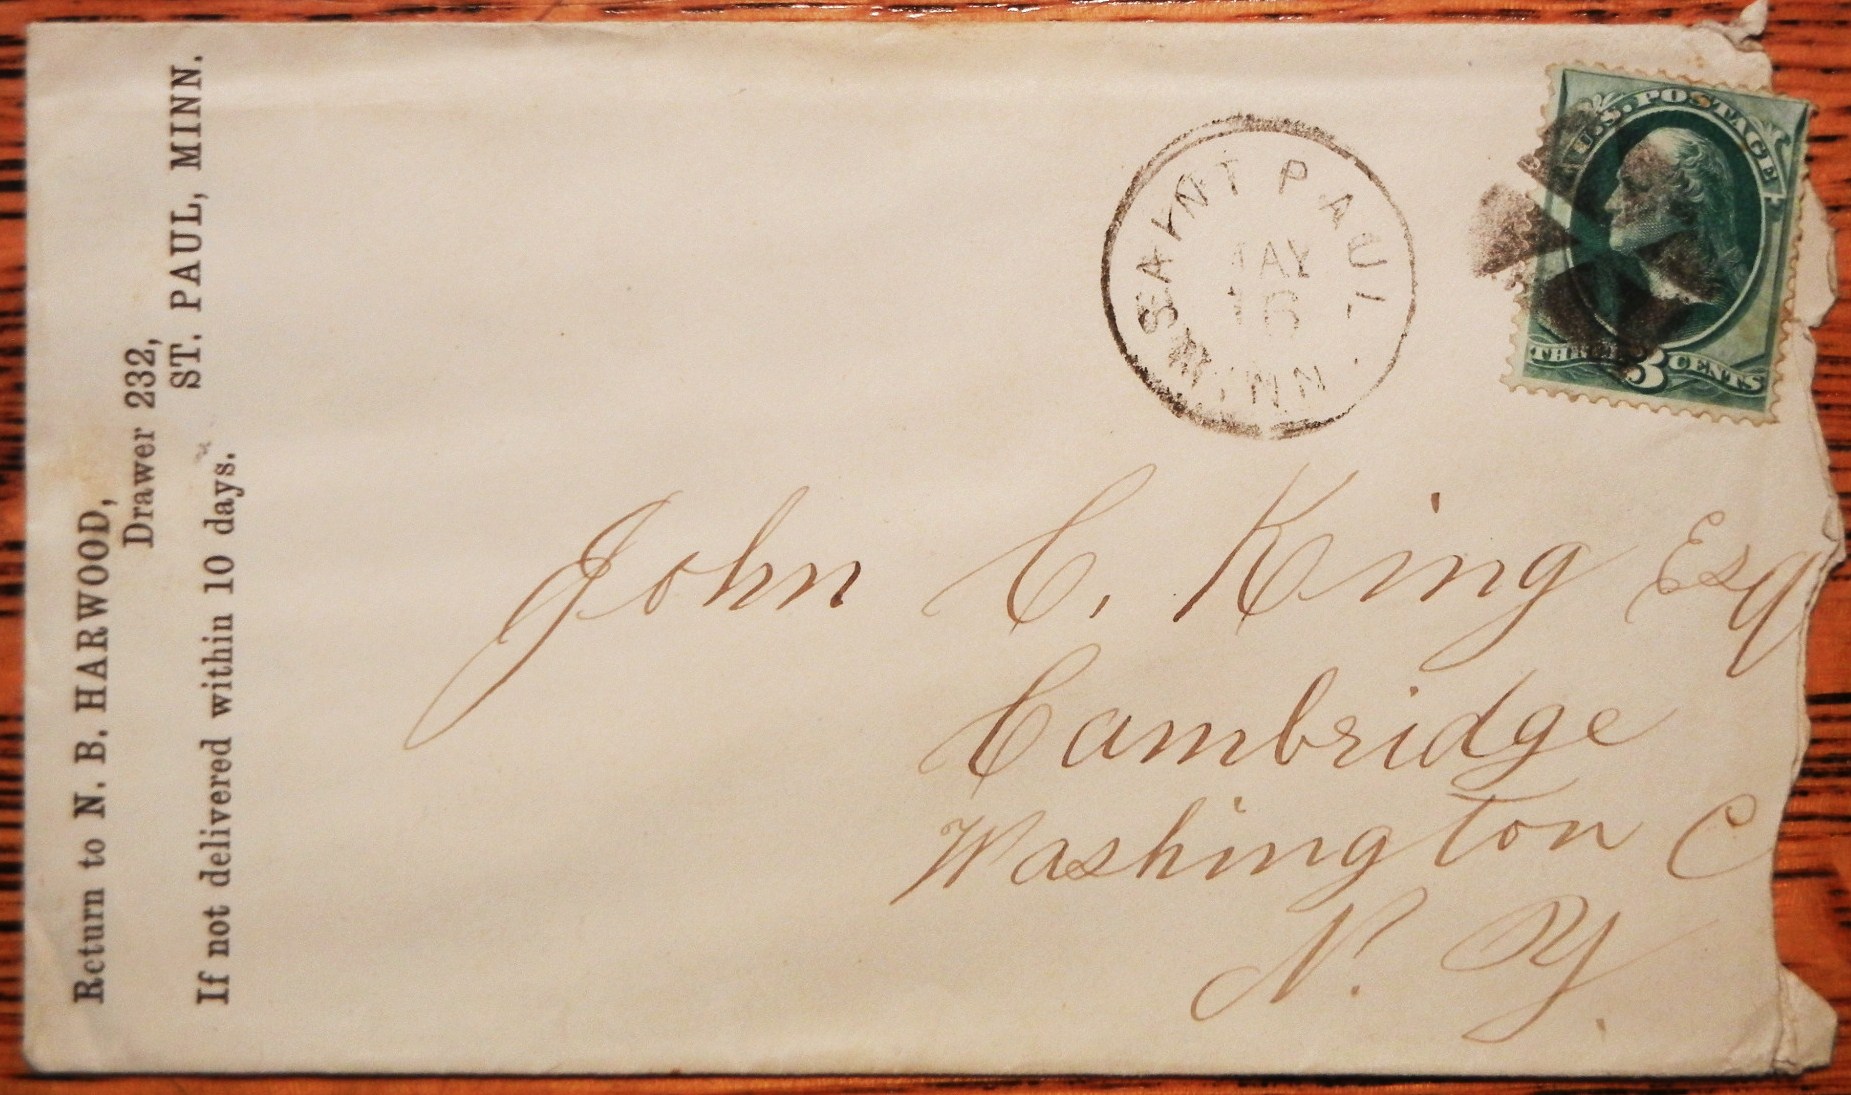 Return to N. B. HARWOOD,
Drawer 232,
ST. PAUL, MINN.
If not delivered within 10 days.
SAINT PAUL
MAY
16
MINN.
U.S. POSTAGE
THREE 3 CENTS
John C. King Esq
Cambridge
Washington C
N. Y.